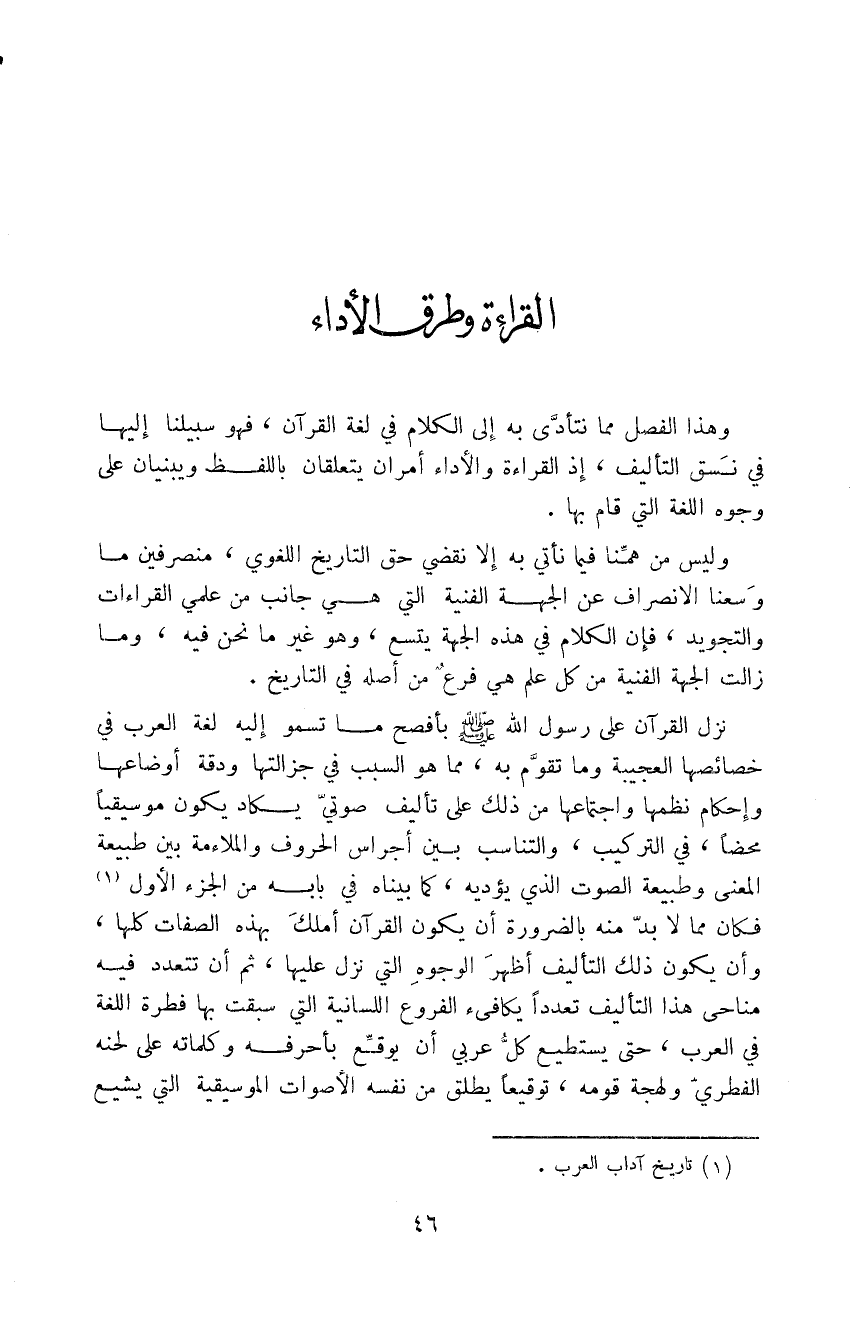 القراءة وطرق الأداء
وهذا الفصل مما نتأدَّى به إلى الكلام في لغة القرآن ، فهو سبيلنا إليها
في نَسق التأليف ، إذ القراءة والأداء أمران يتعلقان باللفظ ويبنيان على
وجوه اللغة التي قام بها .
وليس من همِّنا فيما نأتي به إلا نقضي حق التاريخ اللغوي ، منصرفين ما
وَسعنا الانصراف عن الجهة الفنية التي هي جانب من علمي القراءات
والتجويد ، فإن الكلام في هذه الجهة يتسع ، وهو غير ما نحن فيه ، وما
زالت الجهة الفنية من كل علم هي فرعٌ من أصله في التاريخ .
نزل القرآن على رسول الله ﷺ بأفصح ما تسمو إليه لغة العرب في
خصائصها العجيبة وما تقوَّم به ، مما هو السبب في جزالتها ودقة أوضاعها
وإحكام نظمها واجتماعها من ذلك على تأليف صوتيّ يكاد يكون موسيقياً
محضاً ، في التركيب ، والتناسب بين أجراس الحروف والملاءمة بين طبيعة
المعنى وطبيعة الصوت الذي يؤديه ، كما بيناه في بابه من الجزء الأول (١)
فكان مما لا بدّ منه بالضرورة أن يكون القرآن أملكَ بهذه الصفات كلها ،
وأن يكون ذلك التأليف أظهرَ الوجوهِ التي نزل عليها ، ثم أن تتعدد فيه
مناحى هذا التأليف تعدداً يكافىء الفروع اللسانية التي سبقت بها فطرة اللغة
في العرب ، حتى يستطيع كلُّ عربي أن يوقِّع بأحرفه وكلماته على لحنه
الفطريّ ولهجة قومه ، توقيعاً يطلق من نفسه الأصوات الموسيقية التي يشيع
(١) تاريخ آداب العرب .
٤٦